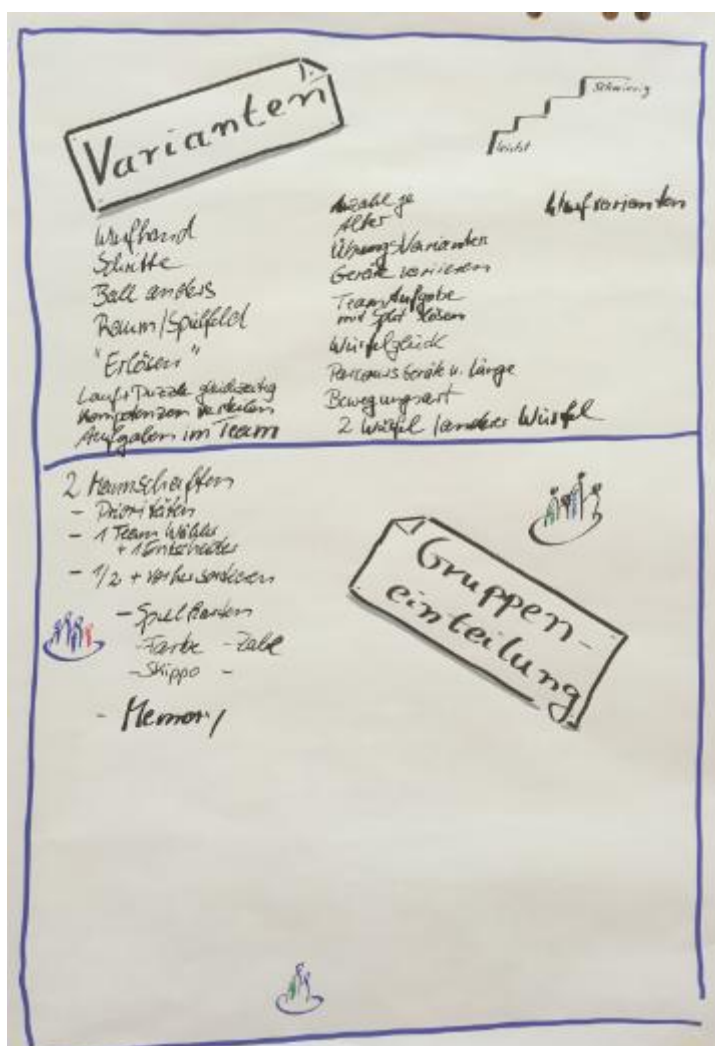 Varianten
schwierig
leicht
Wurfhand
Schritte
Ball anders
Raum/Spielfeld
"Erlösen"
Lauf+Puzzle gleichzeitig
Kompetenzen verteilen
Aufgaben im Team
Anzahl je
Alter
Übungsvarianten
Geräte variieren
TeamAufgabe
mit lösen
Würfelglück
Parcours Geräte u. Länge
Bewegungsart
2 Würfel /anderer Würfel
Wurfvarianten
2 Mannschaften
- Prioritäten
- 1 Team Wähler
+ 1 Entscheider
- 1/2 + vorher
- Spielkarten
- Farbe - Zahl
- Skippo -
- Memory
Gruppen-
einteilung